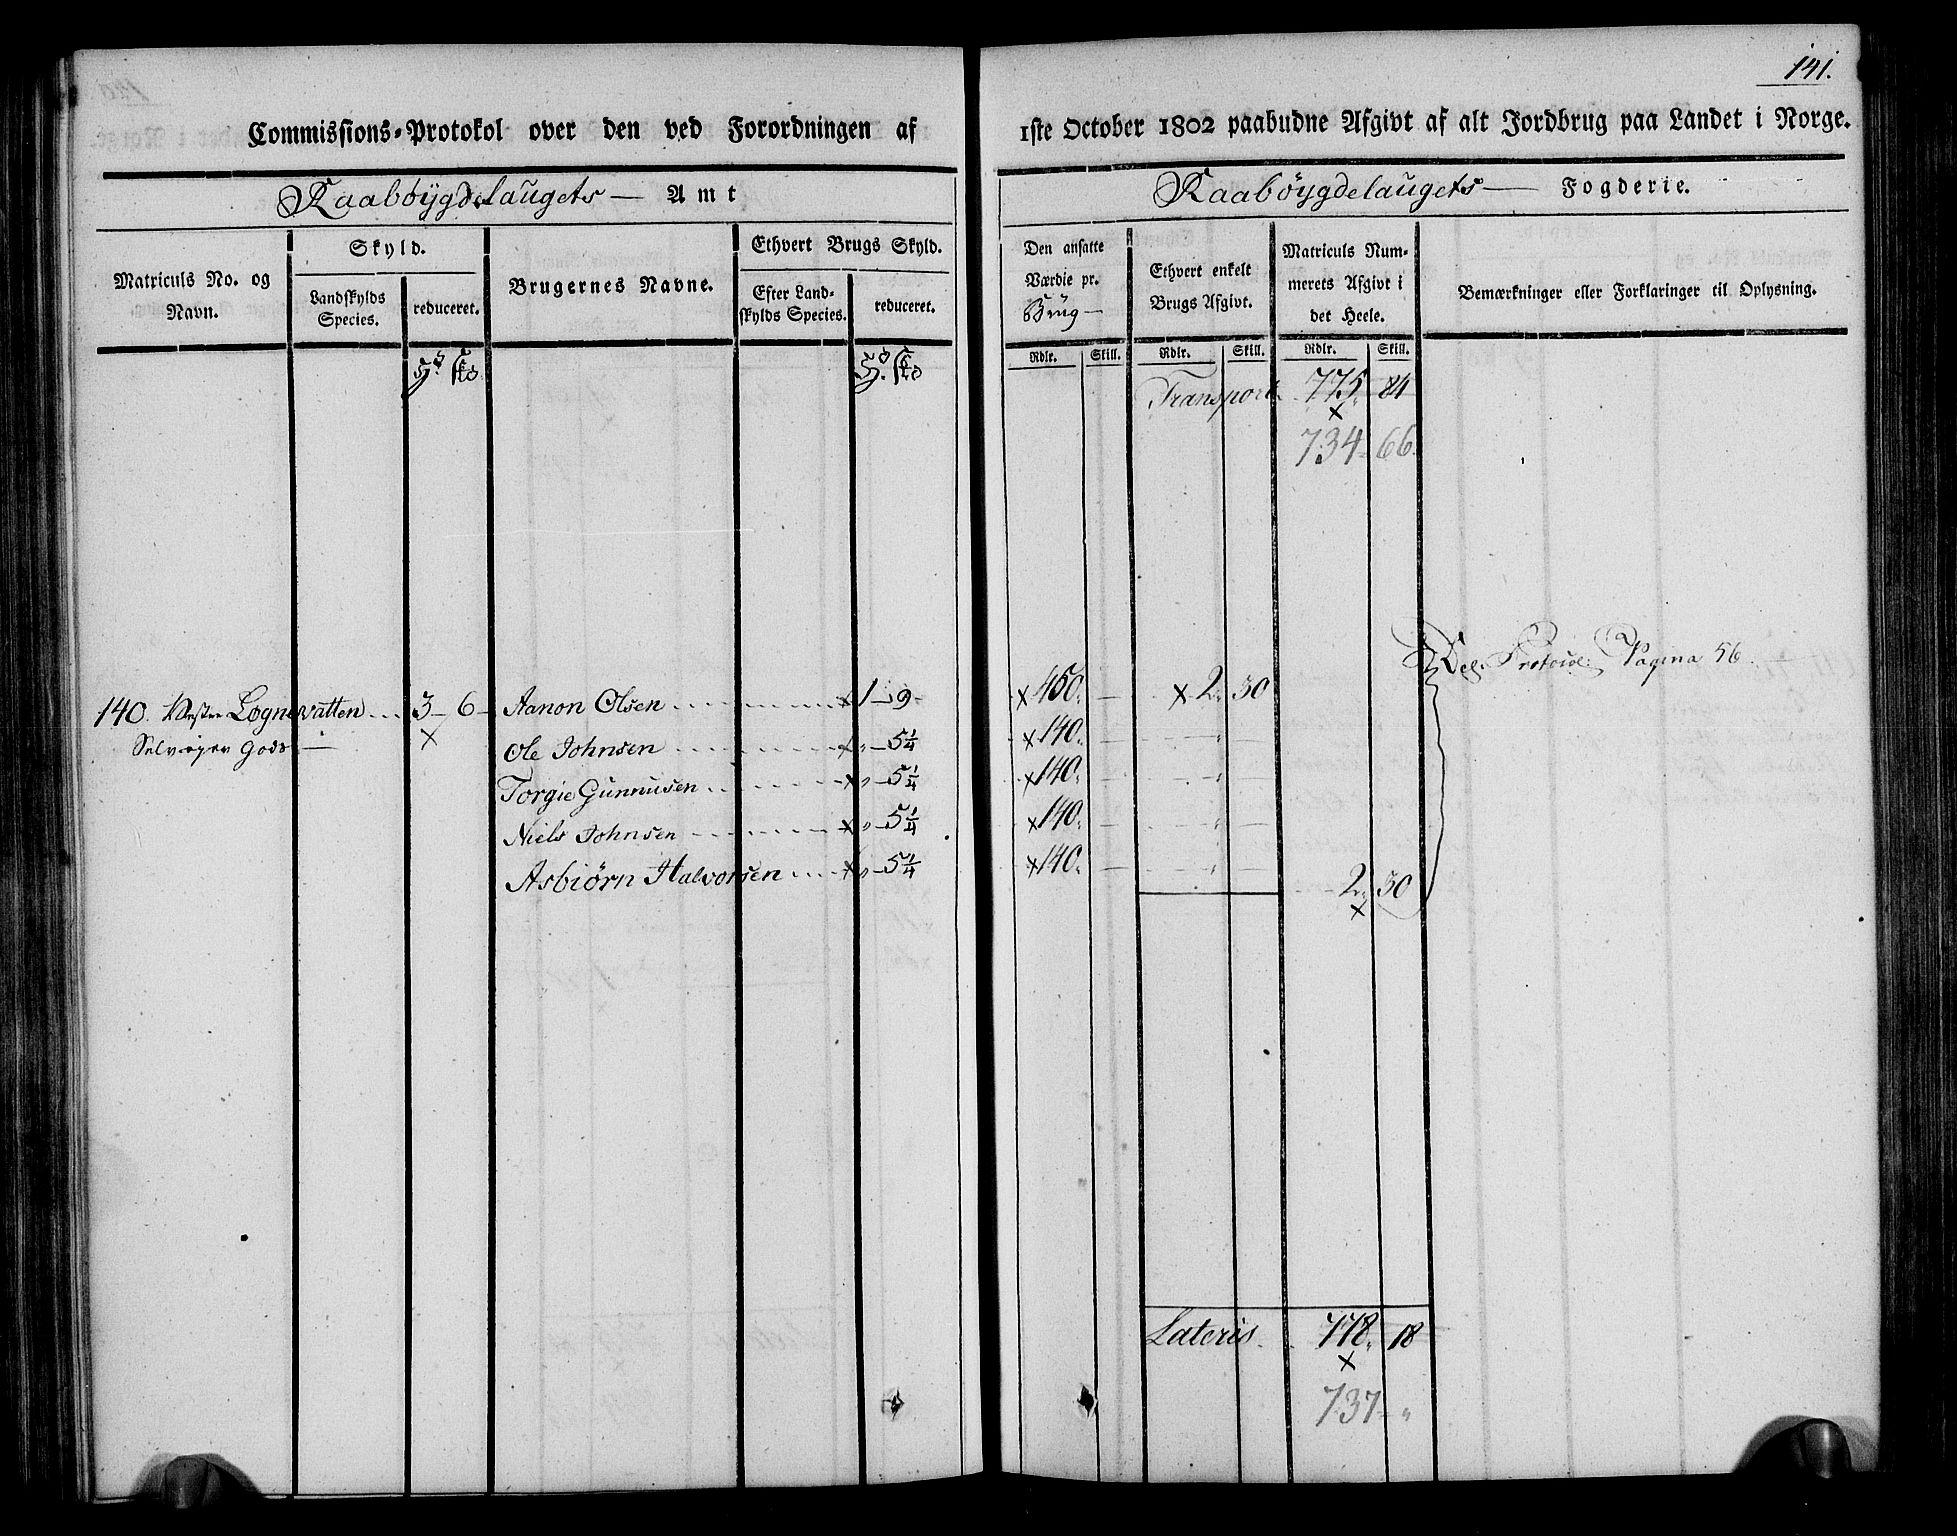 141.
Commissions-Protokol over den ved Forordningen af
1ste October 1802 paabudne Afgivt af alt Jordbrug paa Landet i Norge.
Raabøygdelaugets — Amt
Raabøygdelaugets — Fogderie.
Matriculs No. og Navn.
Skyld.
Landskylds Species.
reduceret.
Brugernes Navne.
Ethvert Brugs Skyld.
Efter Landskylds Species.
reduceret.
Den ansatte Værdie pr. Brug —
Ethvert enkelt Brugs Afgivt.
Matriculs Nummerets Afgivt i det Heele.
Bemærkninger eller Forklaringer til Oplysning.
Rdlr. Skill. Rdlr. Skill. Rdlr. Skill.
Transport 775 84
734 66
Pagina 56.
140. Vestre Lognevatten 3 6 Aanon Olsen 1 9 450 2 30
Selveyer Gods — Ole Johnsen " 5 1/4 140 "
Torgie Gunnusen " 5 1/4 140 "
Niels Johnsen " 5 1/4 140 "
Asbiørn Halvorsen " 5 1/4 140 "
2 30
Lateris 778 18
737 "